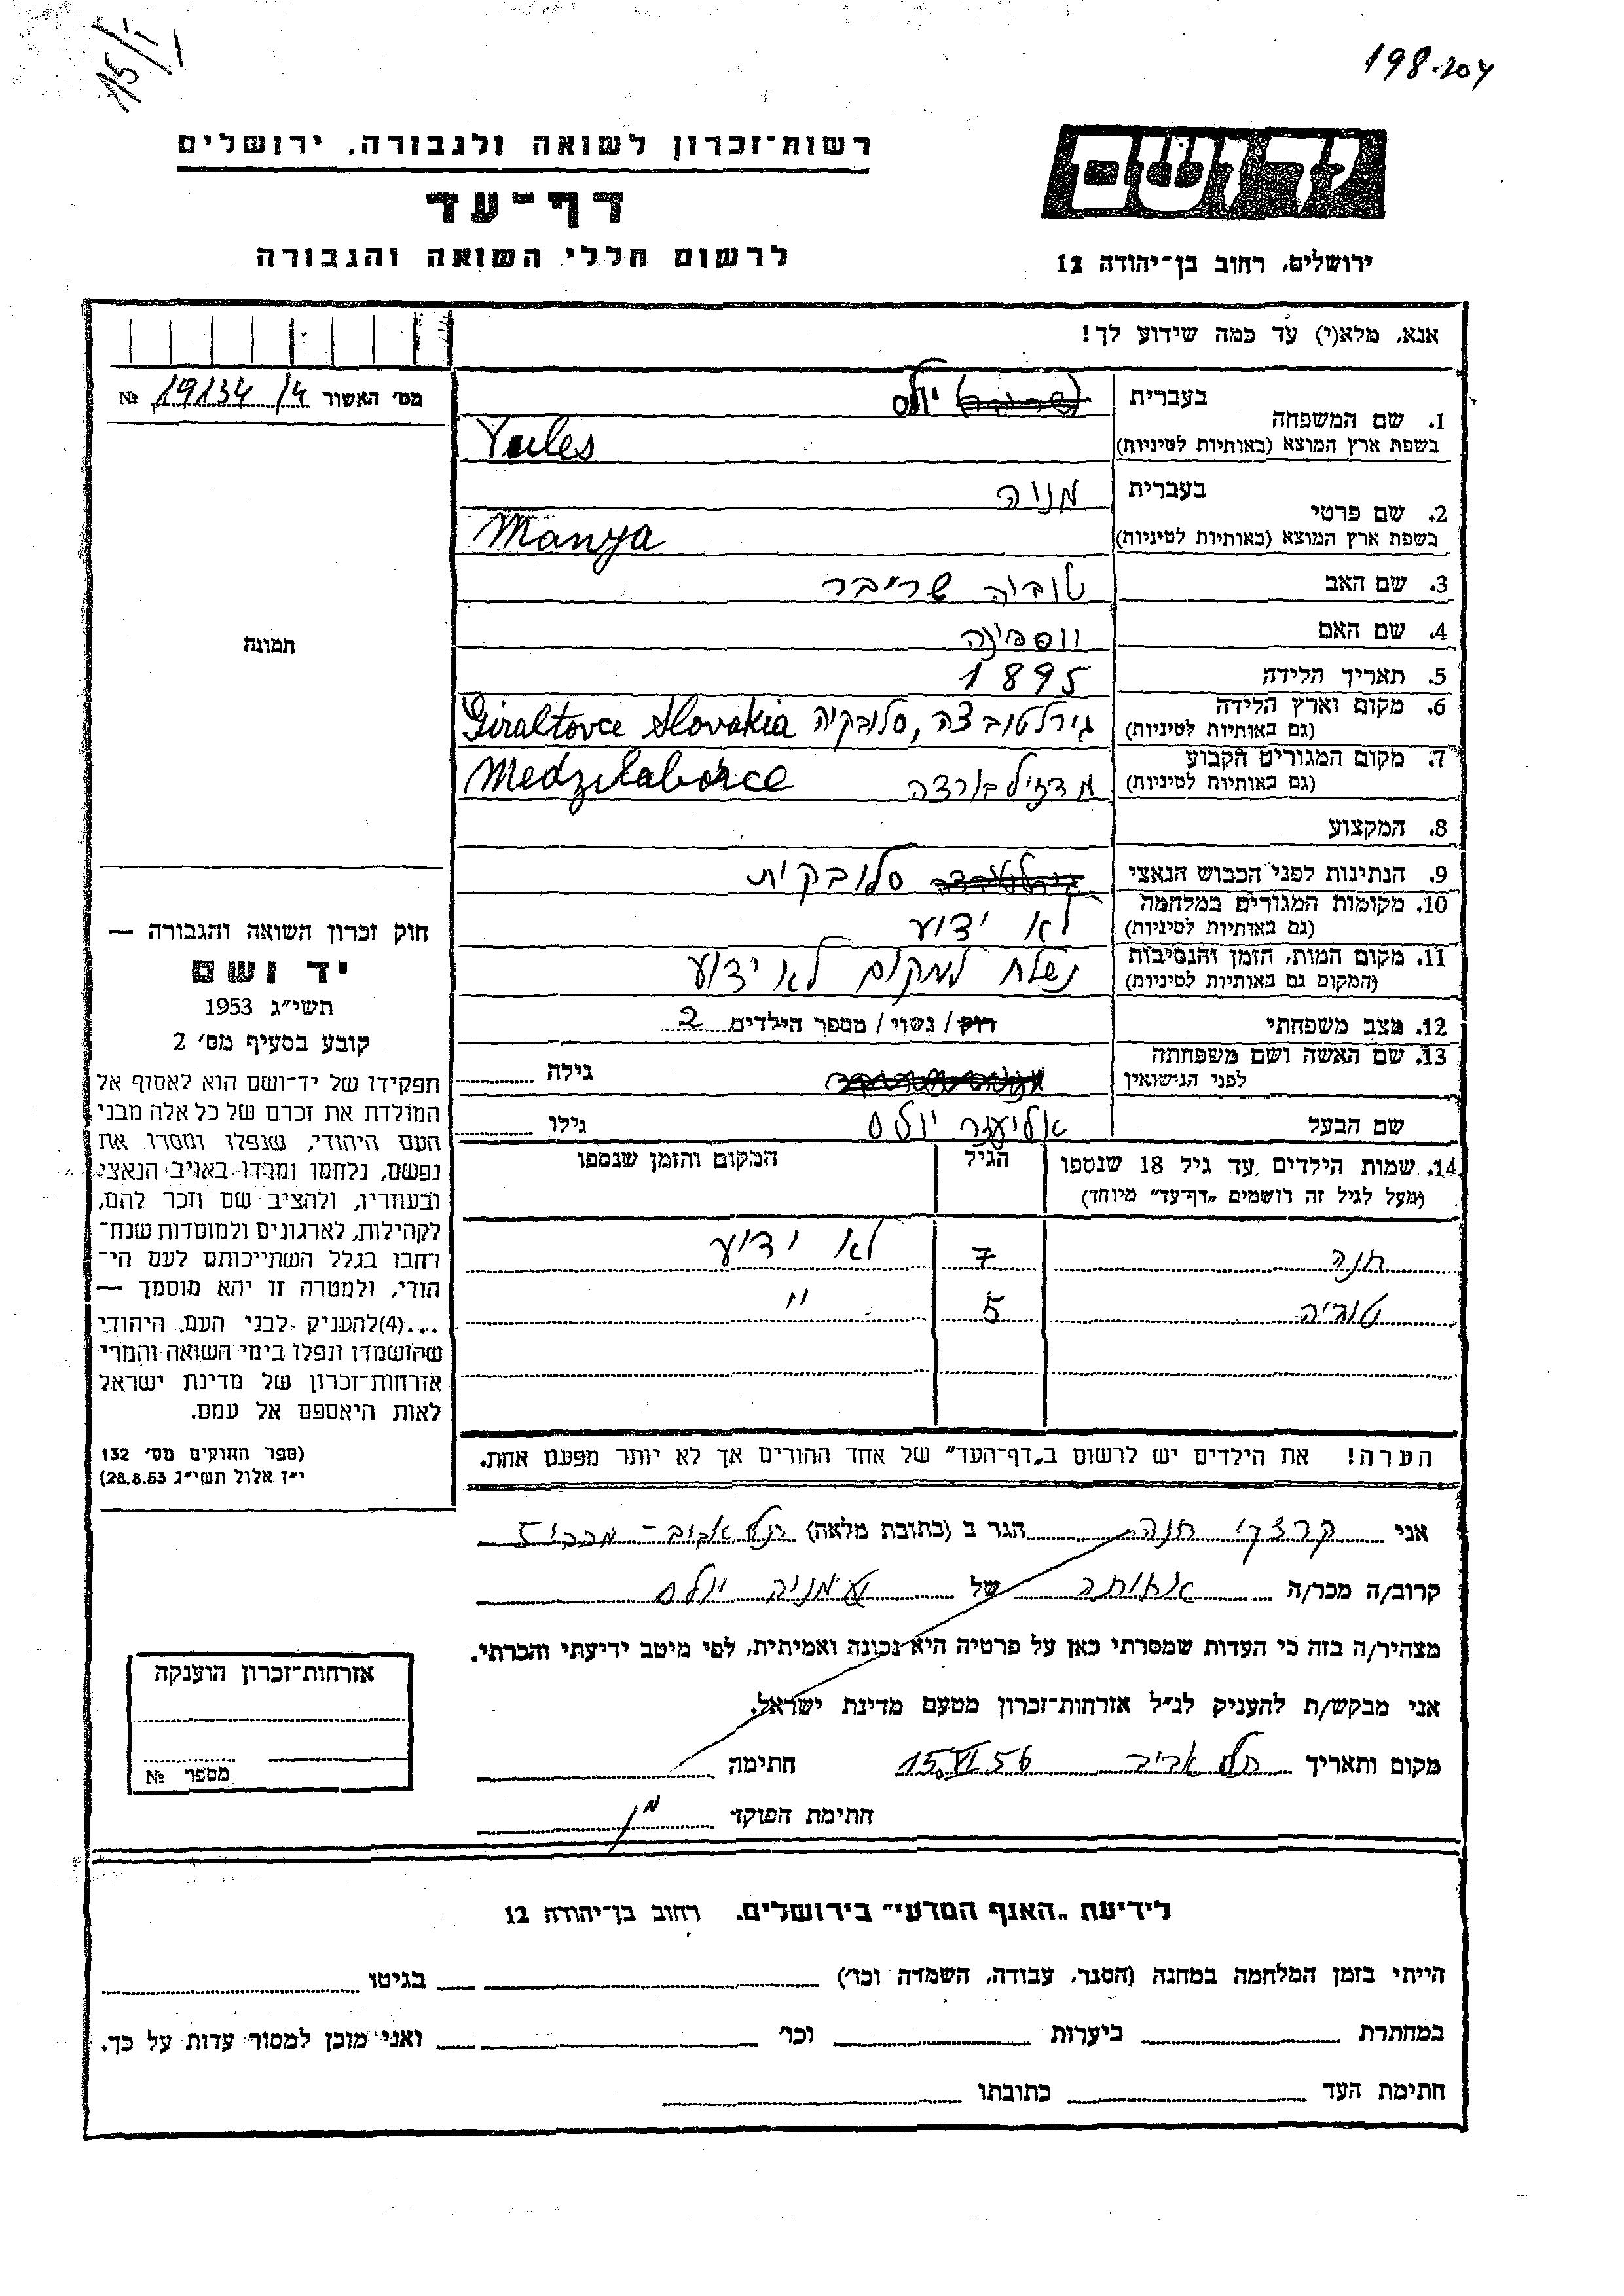 15/1
198-204
רשות־זכרון לשואה ולגבורה, ירושלים
דף־עד
לרשום חללי השואה והגבורה
יד ושם
ירושלים, רחוב בן־יהודה 12
אנא, מלא(י) עד כמה שידוע לך!
מס׳ האשור 19134/4 №
1. שם המשפחה
בעברית יולס
בשפת ארץ המוצא (באותיות לטיניות) Yules
2. שם פרטי
בעברית מניה
בשפת ארץ המוצא (באותיות לטיניות) Manya
3. שם האב טוביה שרייבר
4. שם האם
5. תאריך הלידה 1895
6. מקום וארץ הלידה
(גם באותיות לטיניות) גירלטובצה, סלובקיה Giraltovce Slovakia
7. מקום המגורים הקבוע
(גם באותיות לטיניות) מדזילבורצה Medzilaborce
8. המקצוע
9. הנתינות לפני הכבוש הנאצי סלובקית
10. מקומות המגורים במלחמה
(גם באותיות לטיניות) לא ידוע
11. מקום המות, הזמן והנסיבות
(המקום גם באותיות לטיניות) נשלח למקום לא ידוע
12. מצב משפחתי רווק / נשוי / מספר הילדים 2
13. שם האשה ושם משפחתה
לפני הנישואין גילה
שם הבעל אליעזר יולס גילו
14. שמות הילדים עד גיל 18 שנספו הגיל המקום והזמן שנספו
(מעל לגיל זה רושמים „דף־עד” מיוחד)
חנה 7 לא ידוע
טוביה 5 "
הערה! את הילדים יש לרשום ב„דף־העד” של אחד ההורים אך לא יותר מפעם אחת.
תמונה
חוק זכרון השואה והגבורה —
יד ושם
תשי״ג 1953
קובע בסעיף מס׳ 2
תפקידו של יד־ושם הוא לאסוף אל
המולדת את זכרם של כל אלה מבני
העם היהודי, שנפלו ומסרו את
נפשם, נלחמו ומרדו באויב הנאצי
ובעוזריו, ולהציב שם וזכר להם,
לקהילות, לארגונים ולמוסדות שנח־
רחבו בגלל השתייכותם לעם הי־
הודי, ולמטרה זו יהא מוסמך —
...(4)להעניק לבני העם היהודי
שהושמדו ונפלו בימי השואה והמרי
אזרחות־זכרון של מדינת ישראל
לאות היאספם אל עמם.
(ספר החוקים מס׳ 132
י״ז אלול תשי״ג 28.8.53)
אני קרצקי חנה הגר ב (כתובת מלאה) תל אביב - מכבי 5
קרוב/ה מכר/ה אחותה של מניה יולס
מצהיר/ה בזה כי העדות שמסרתי כאן על פרטיה היא נכונה ואמיתית, לפי מיטב ידיעתי והכרתי.
אני מבקש/ת להעניק לנ״ל אזרחות־זכרון מטעם מדינת ישראל.
מקום ותאריך תל אביב 15.VI.56 חתימה
חתימת הפוקד
אזרחות־זכרון הוענקה
מספר №
לידיעת „האגף המדעי” בירושלים, רחוב בן־יהודה 12
הייתי בזמן המלחמה במחנה (הסגר, עבודה, השמדה וכו׳) בגיטו
במחתרת ביערות וכו׳ ואני מוכן למסור עדות על כך.
חתימת העד כתובתו